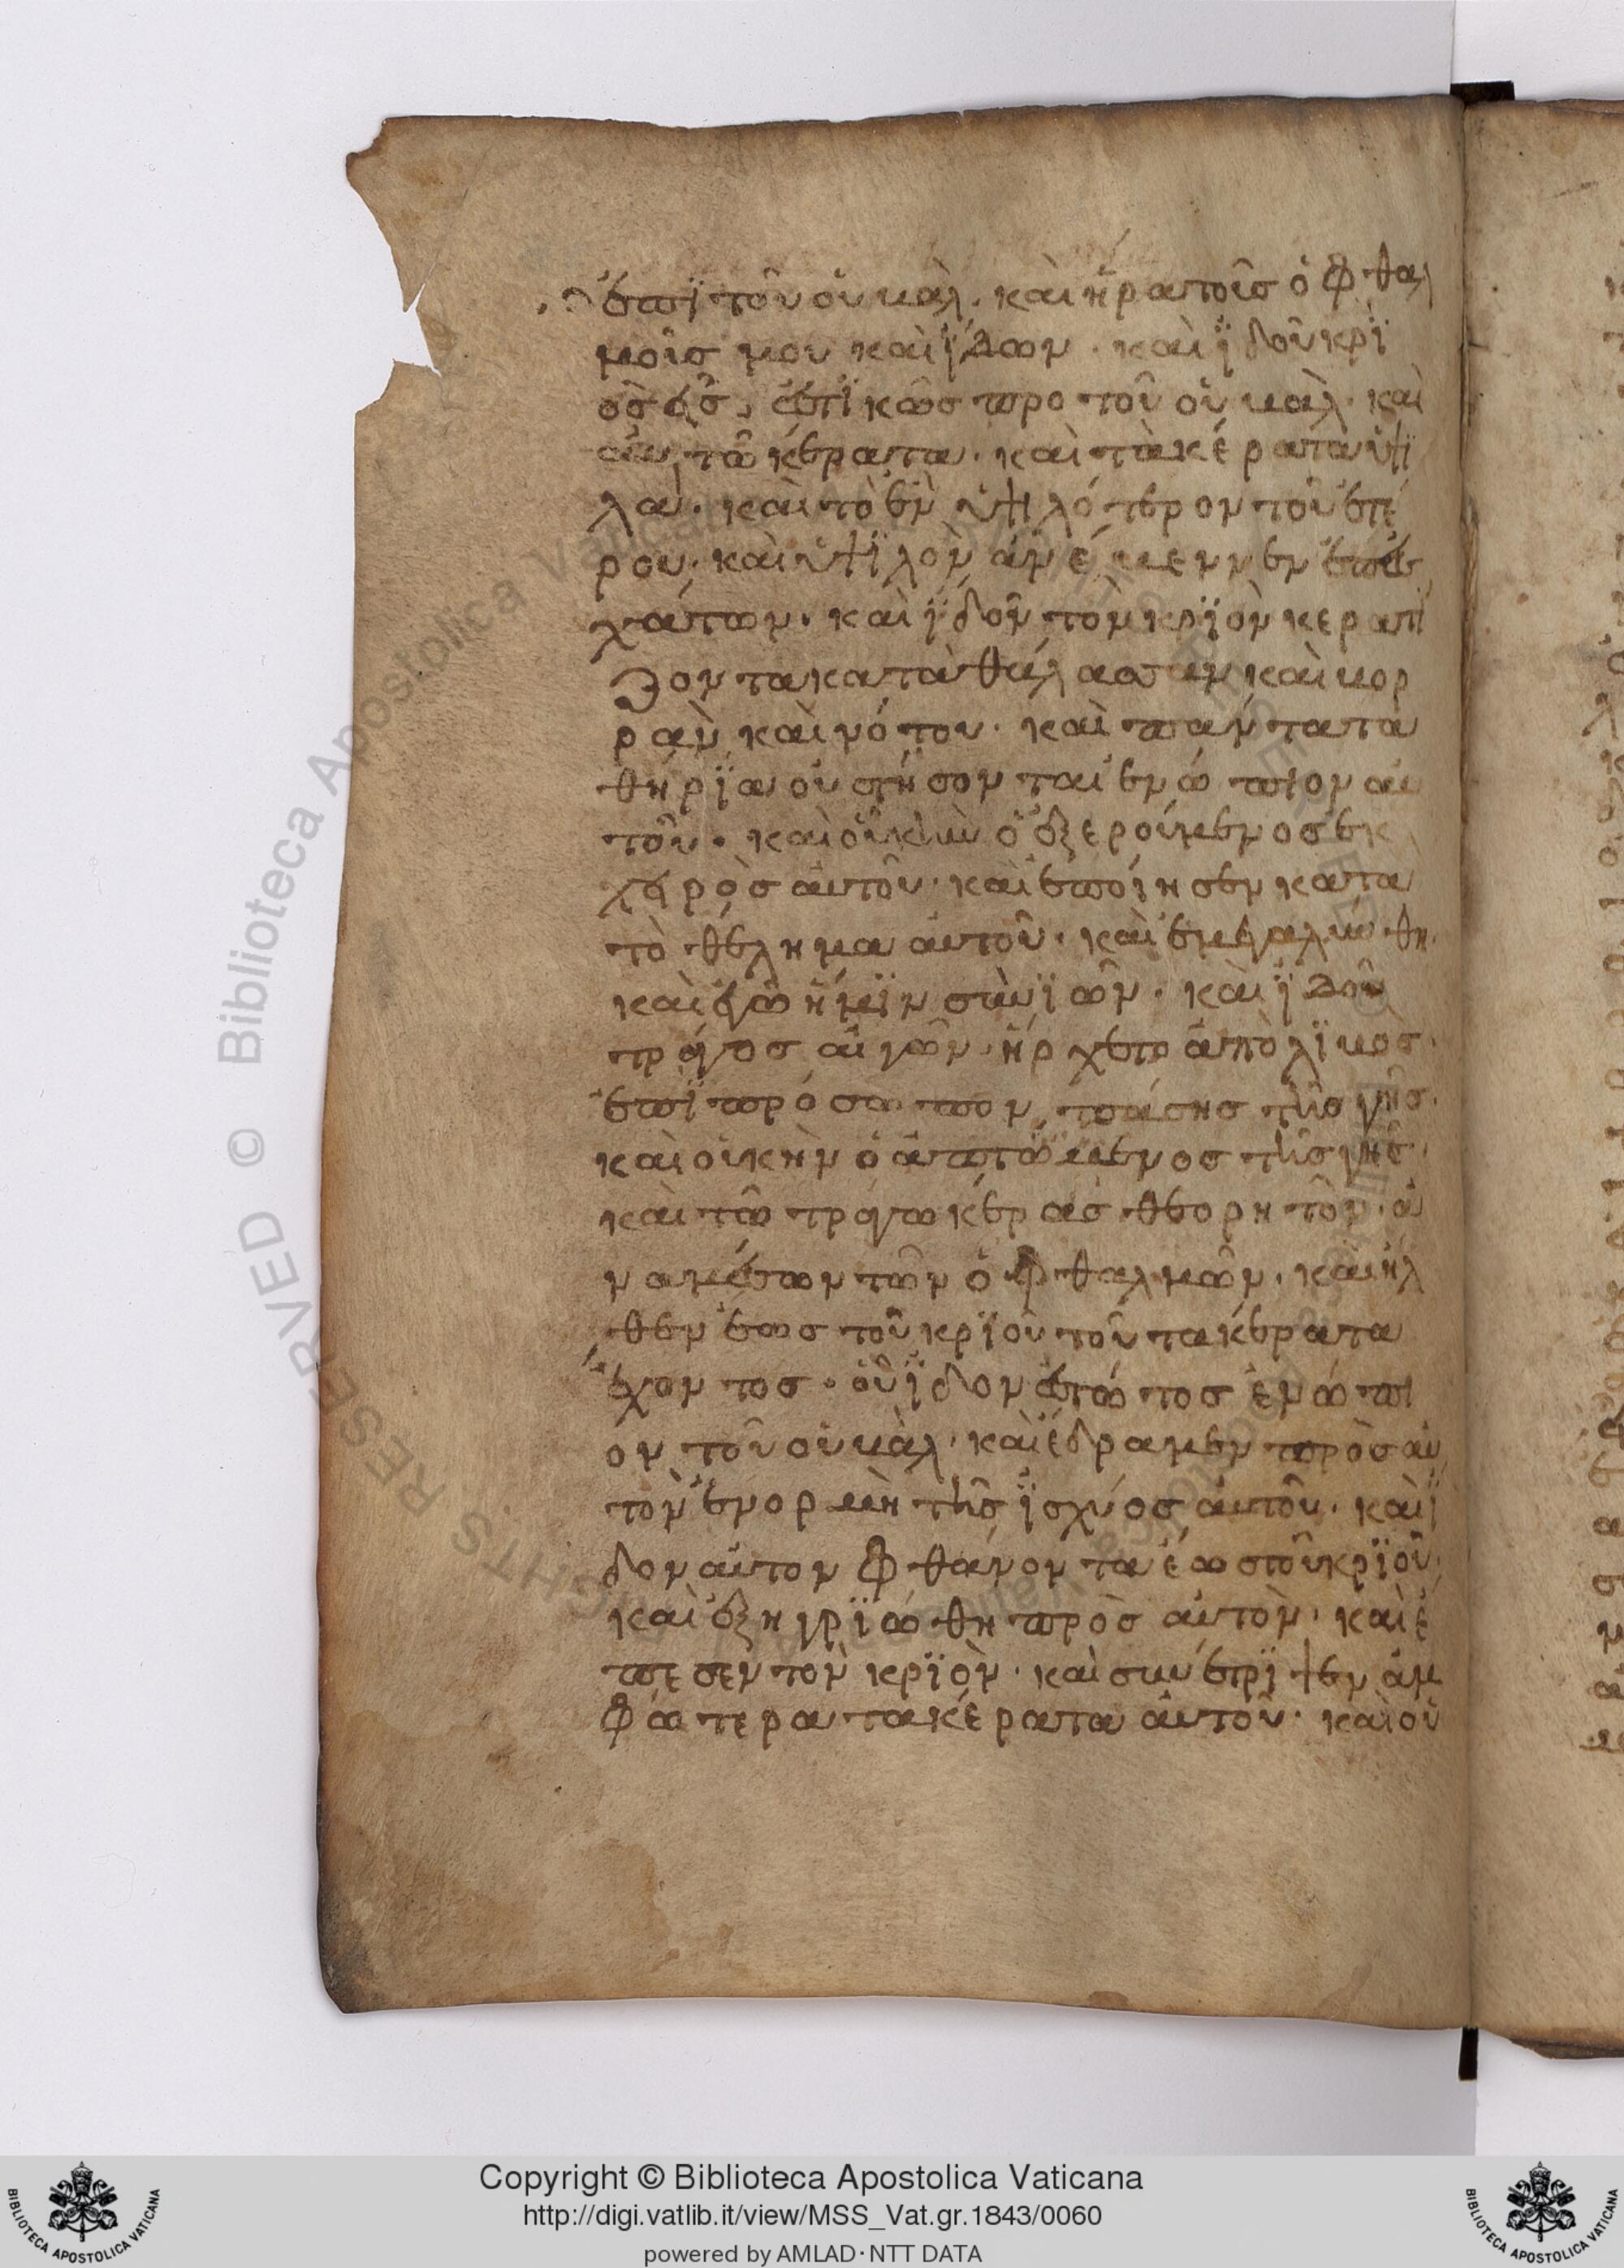 ἐπὶ τοῦ οὐβάλ. καὶ ἦρα τοῖσ ὀφθαλ
μοῖσ μου καὶ ἴδων. καὶ ἰδοῦ κρϊ
ὸσ εἷσ, ἑστϊκὼσ προ τοῦ οὐβάλ. καὶ
αὐτῶ κέρατα. καὶ τὰ κέρατα ὑψϊ
λα. καὶ τὸ ἓν ὑψηλότερον τοῦ ἑτέ
ρου. καὶ ὑψϊλὸν ἀνέβεννεν ἐπ ἐσ
χάτων. καὶ ἴδον τὸν κρϊὸν κερατί
ζοντα κατὰ θάλασσαν καὶ βορ
ρὰν καὶ νότον. καὶ πάντα τὰ
θηρϊα οὐ στήσονται ἐνώπιον αὐ
τοῦ. καὶ οὐκ ἦν ὁ ἐξερούμενοσ ἐκ
χειρὸσ αὐτοῦ. καὶ ἐποίησεν κατα
τὸ θέλημα αὐτοῦ. καὶ ἐμεγαλύνθη.
καὶ ἐγὼ ἤμϊν συνϊῶν. καὶ ϊδοῦ
τράγοσ αἰγῶν. ἤρχετο ἀπὸ λϊβὸσ.
ἐπϊ πρόσωπον πάσησ τῆσ γῆσ.
καὶ οὐκ ἦν ὁ ἁπτώμενοσ τῆσ γῆσ.
καὶ τῶ τράγω κέρασ θεορητὸν. ἀ
ναμέσων τῶν ὀφθαλμῶν. καὶ ἦλ
θεν ἕωσ τοῦ κρϊοῦ τοῦ τα κέρατα
ἔχοντοσ. οὗ ἴδον ἑστώτοσ ἐνώπι
ον τοῦ οὐβάλ. καὶ ἔδραμεν πρὸσ αὐ
τὸν ἐν ορμῆ τῆσ ϊσχύοσ αὐτοῦ. καὶ ἴ
δον αὐτον φθάνοντα ἕωσ τοῦ κρϊοῦ.
καὶ ἐξηγρϊώθη πρὸσ αὐτὸν. καὶ ἔ
πεσεν τὸν κρϊὸν. καὶ συνέτρϊψεν ἀμ
φώτερα τα κέρατα αὐτοῦ. καὶ οὐ
Copyright © Biblioteca Apostolica Vaticana
http://digi.vatlib.it/view/MSS_Vat.gr.1843/0060
powered by AMLAD·NTT DATA